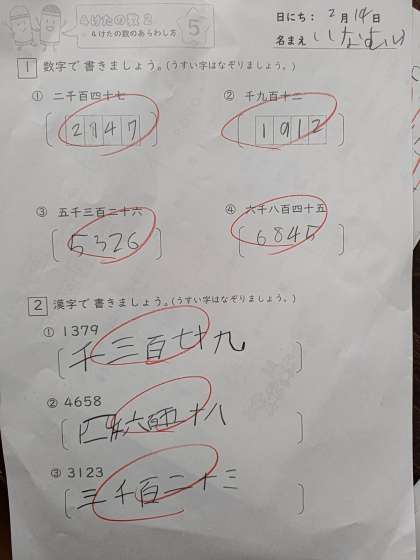 4けたの数 2
4けたの数のあらわし方
5
日にち： 2月14日
名まえ
1 数字で 書きましょう。(うすい字はなぞりましょう。)
① 二千百四十七
② 千九百十二
2147
1912
③ 五千三百二十六
④ 六千八百四十五
5326
6845
2 漢字で 書きましょう。(うすい字はなぞりましょう。)
① 1379
千三百七十九
② 4658
四千六百五十八
③ 3123
三千百二十三